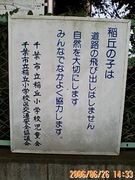 稲丘の子は
道路の飛び出しはしません
自然を大切にします
みんなでなかよく協力します。
千葉市立稲丘小学校児童会
千葉市立稲丘小学校区交通安全協議会
2006/06/26 14:33